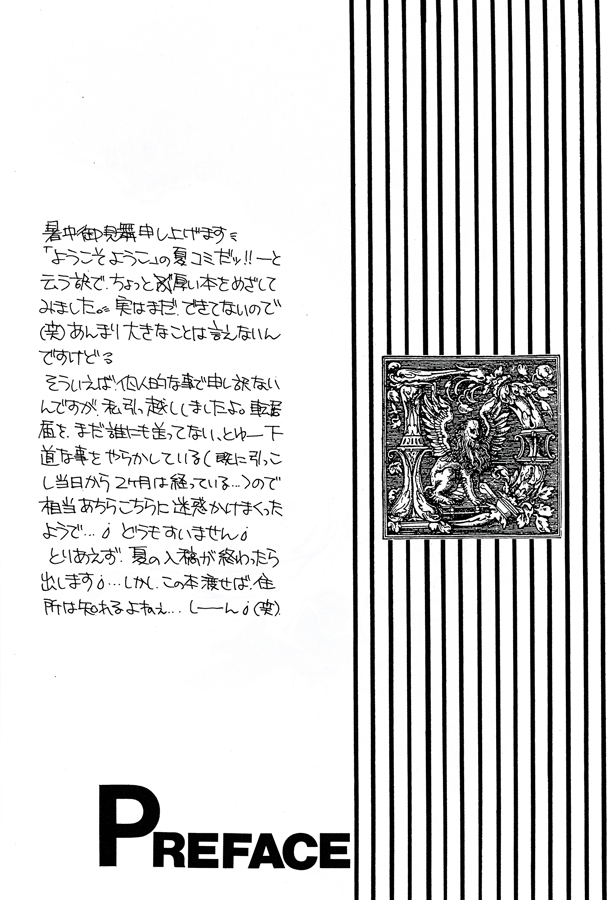 暑中御見舞申し上げます〃
「ようこそようこ」の夏コミだッ!!ーと
云う訳で、ちょっと厚い本をめざして
みました。〃実はまだ、できてないので
(笑)あんまり大きなことは言えないん
ですけど
そういえば、個人的な事で申し訳ない
んですが、私引っ越ししましたよ。転居
届を、まだ誰にも送ってない、とゆー下
道な事をやらかしている(既に引っこ
し当日から2ヶ月は経っている…)ので
相当あちらこちらに迷惑かけまくった
ようで…。どうもすいません。
とりあえず、夏の入稿が終わったら
出します。…しかし、この本渡せば、住
所は知れるよねぇ… しーーん。(笑)
PREFACE